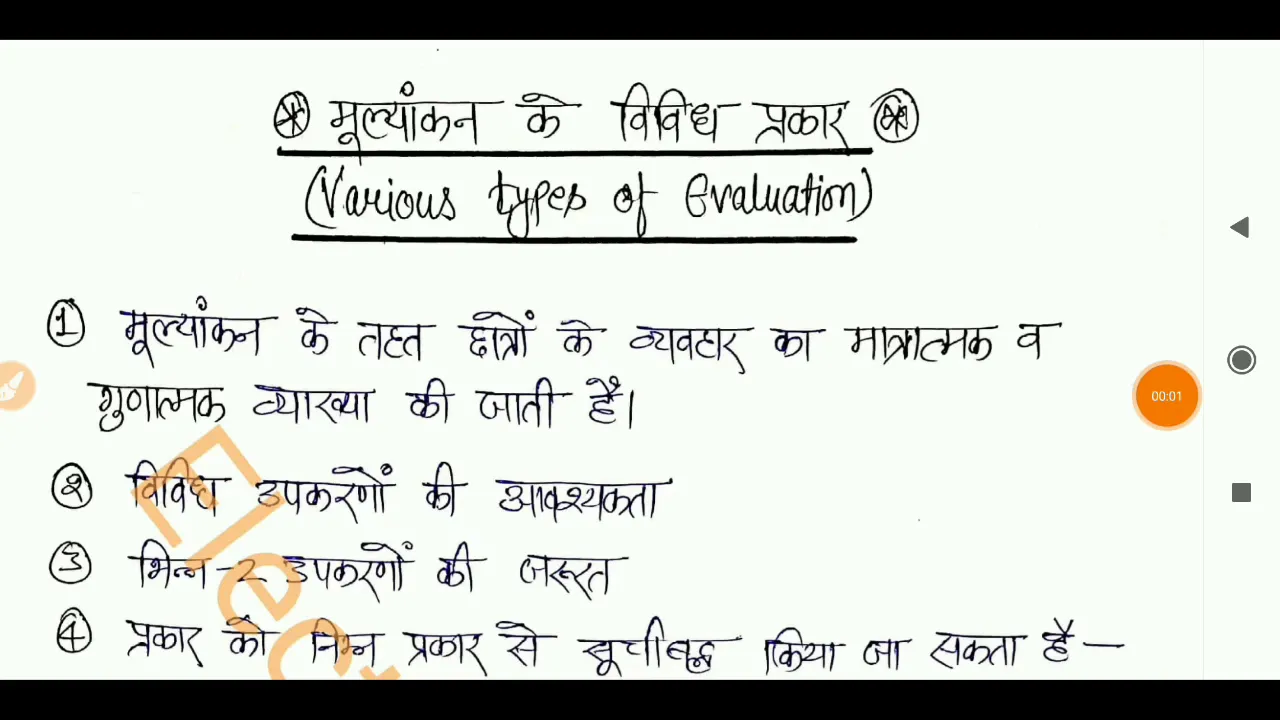 मूल्यांकन के विविध प्रकार
(Various types of Evaluation)
① मूल्यांकन के तहत छात्रों के व्यवहार का मात्रात्मक व
गुणात्मक व्याख्या की जाती है।
00:01
② विविध उपकरणों की आवश्यकता
③ भिन्न-2 उपकरणों की जरूरत
④ प्रकार को निम्न प्रकार से सूचीबद्ध किया जा सकता है –